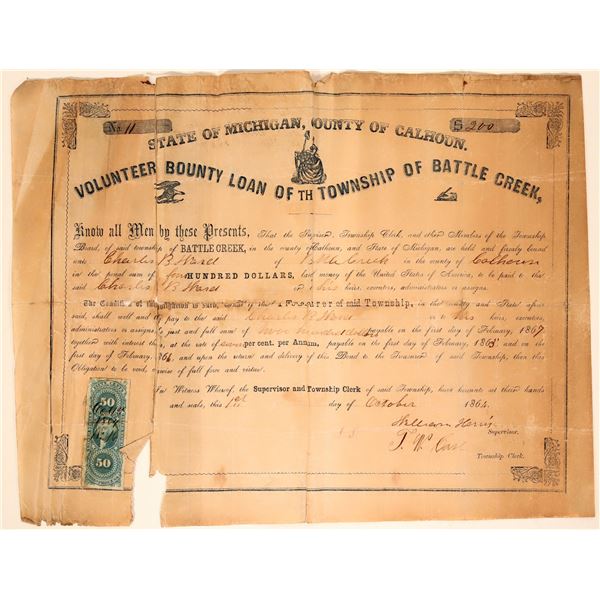 No 11
$ 200
STATE OF MICHIGAN, OUNTY OF CALHOUN.
VOLUNTEER BOUNTY LOAN OF TH TOWNSHIP OF BATTLE CREEK,
Know all Men by these Presents, That the Township Clerk, and other Members of the Township
Board, of said township of BATTLE CREEK, in the county of Calhoun, and State of Michigan, are held and firmly bound
unto Charles B Ward of Battle Creek in the county of Calhoun
in the penal sum of four HUNDRED DOLLARS, lawful money of the United States of America, to be paid to that
said Charles B Ward and his heirs, executors, administrators or assigns.
The Condition of is such, that if the of said Township, in the county and State afore
said, shall well and pay to the said Charles B Ward or his heirs, executors,
administrators or assigns, just and full sum of two hundred dollars payable on the first day of February, 1867
together with interest at the rate of seven per cent. per Annum, payable on the first day of February, 1865 and on the
first day of February, 186 and upon the return and delivery of this Bond to the Treasurer of said Township, then this
Obligation to be void, otherwise of full force and virtue.
In Witness Whereof, the Supervisor and Township Clerk of said Township, have hereunto set their hands
and seals, this 1st day of October 1864.
William
Supervisor.
Township Clerk.
50
50